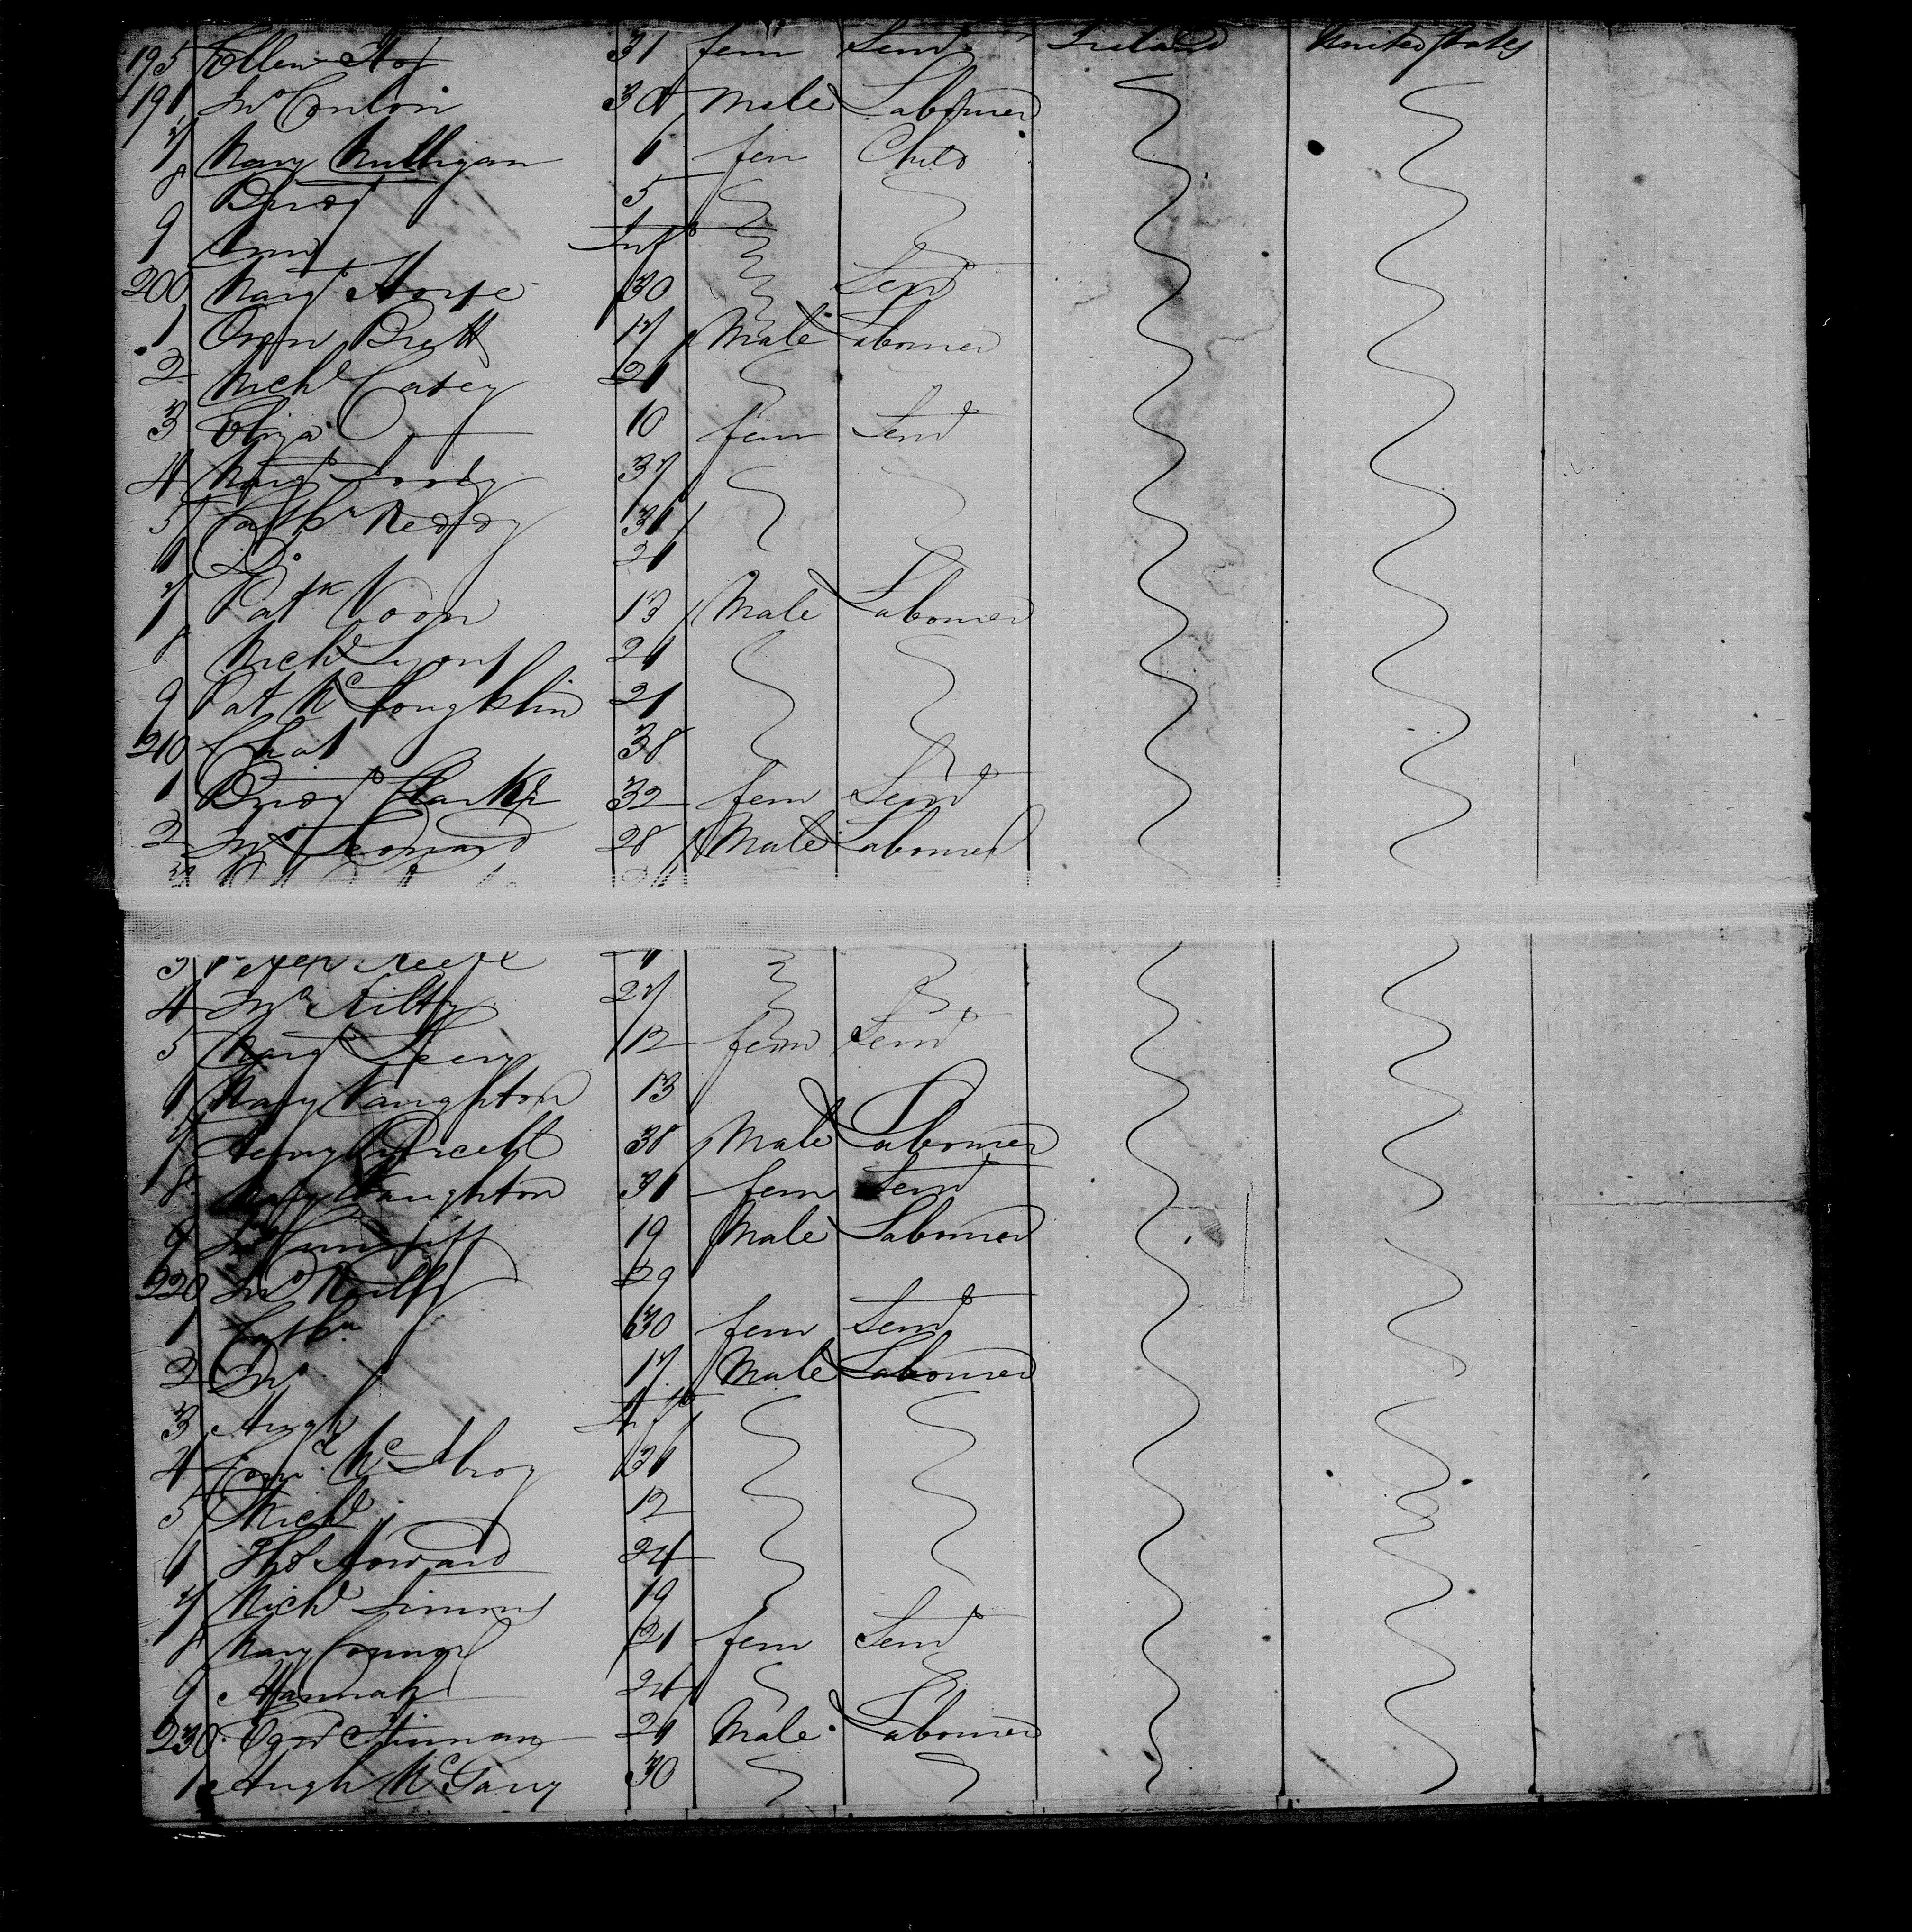 195 Ellen 31 fem Serv.t Ireland United States
196 Jn.o Conlon 30 Male Labourer
7 Mary Mulligan 6 fem Child
8 Bridg.t 5
9 Ann Inf.t
200 Marg.t 30 Serv.t
1 Owen Brett 17 Male Labourer
2 Mich.l Casey 26
3 Eliza 10 fem Serv.t
4 Marg.t 37
5 Cath.n Reddy 36
6 D.o 26
7 Pat.k Noon 13 Male Labourer
8 Mich.l Lyons 26
9 Pat McLoughlin 21
210 38
1 Bridg.t Clarke 32 fem Serv.t
2 Jn.o Leonard 28 Male Labourer
3 Peter Keefe
4 Jn.o Kilty 27
5 Marg.t 12 fem Serv.t
6 Mary Naughton 13
7 Henry Purcell 38 Male Labourer
8 Mary Naughton 36 fem Serv.t
9 Jn.o Cunniff 19 Male Labourer
220 Jn.o Reilly 29
1 Cath.n 30 fem Serv.t
2 Jn.o 17 Male Labourer
3 Hugh Inf.t
4 36
5 Mich.l 12
6 Tho.s Howard 24
7 Mich.l Simons 19
8 Mary 21 fem Serv.t
9 Hannah 24
230 21 Male Labourer
1 Hugh McGarry 30